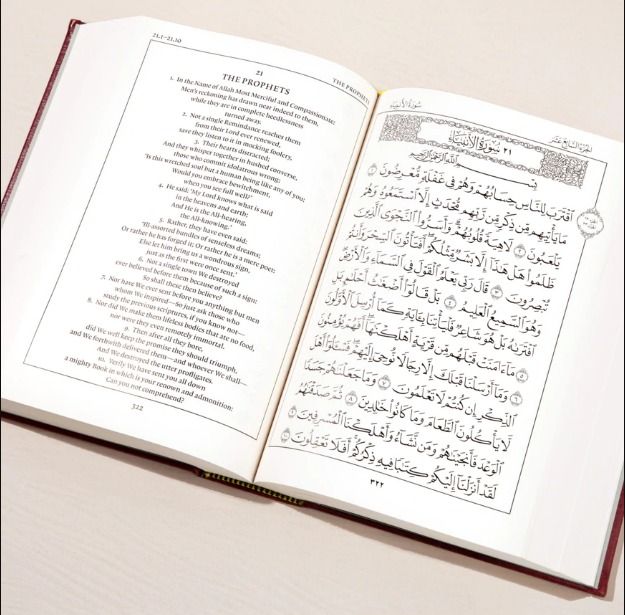 21.1–21.10
THE PROPHETS
21
THE PROPHETS
1. In the Name of Allah Most Merciful and Compassionate;
Men's reckoning has drawn near indeed to them,
while they are in complete heedlessness
turned away.
2. Not a single Remindance reaches them
from their Lord ever renewed,
save they listen to it in mocking foolery,
3. Their hearts distracted;
And they whisper together in hushed converse,
those who commit idolatrous wrong:
'Is this wretched soul but a human being like any of you;
Would you embrace bewitchment,
when you see full well?'
4. He said, 'My Lord knows what is said
in the heavens and earth;
And He is the All-hearing,
the All-knowing.'
5. Rather, they have even said:
'Ill-assorted bundles of senseless dreams;
Or rather he has forged it; Or rather he is a mere poet;
Else let him bring us a wondrous sign,
just as the first were once sent.'
6. Not a single town We destroyed
ever believed before them because of such a sign:
So shall these then believe?
7. Nor have We ever sent before you anything but men
whom We inspired—So just ask those who
study the previous scriptures, if you know not—
8. Nor did We make them lifeless bodies that ate no food,
nor were they even remotely immortal,
9. Then after all they bore,
did We well keep the promise they should triumph,
and We forthwith delivered them—and whoever We shall—
And We destroyed the utter profligates.
10. Verily We have sent you all down
a mighty Book in which is your renown and admonition:
Can you not comprehend?
322
سُورَةُ الأَنْبِيَاءِ
الجُزْءُ السَّابِعَ عَشَرَ
٢١ سُورَةُ الأَنْبِيَاءِ
بِسْمِ اللَّهِ الرَّحْمَٰنِ الرَّحِيمِ
اقْتَرَبَ لِلنَّاسِ حِسَابُهُمْ وَهُمْ فِي غَفْلَةٍ مُعْرِضُونَ ١
مَا يَأْتِيهِمْ مِنْ ذِكْرٍ مِنْ رَبِّهِمْ مُحْدَثٍ إِلَّا اسْتَمَعُوهُ وَهُمْ
يَلْعَبُونَ ٢ لَاهِيَةً قُلُوبُهُمْ وَأَسَرُّوا النَّجْوَى الَّذِينَ
ظَلَمُوا هَلْ هَذَا إِلَّا بَشَرٌ مِثْلُكُمْ أَفَتَأْتُونَ السِّحْرَ وَأَنْتُمْ
تُبْصِرُونَ ٣ قَالَ رَبِّي يَعْلَمُ الْقَوْلَ فِي السَّمَاءِ وَالْأَرْضِ
وَهُوَ السَّمِيعُ الْعَلِيمُ ٤ بَلْ قَالُوا أَضْغَاثُ أَحْلَامٍ بَلِ
افْتَرَاهُ بَلْ هُوَ شَاعِرٌ فَلْيَأْتِنَا بِآيَةٍ كَمَا أُرْسِلَ الْأَوَّلُونَ
٥ مَا آمَنَتْ قَبْلَهُمْ مِنْ قَرْيَةٍ أَهْلَكْنَاهَا أَفَهُمْ يُؤْمِنُونَ
٦ وَمَا أَرْسَلْنَا قَبْلَكَ إِلَّا رِجَالًا نُوحِي إِلَيْهِمْ فَسْـَٔلُوا أَهْلَ
الذِّكْرِ إِنْ كُنْتُمْ لَا تَعْلَمُونَ ٧ وَمَا جَعَلْنَاهُمْ جَسَدًا
لَا يَأْكُلُونَ الطَّعَامَ وَمَا كَانُوا خَالِدِينَ ٨ ثُمَّ صَدَقْنَاهُمُ
الْوَعْدَ فَأَنْجَيْنَاهُمْ وَمَنْ نَشَاءُ وَأَهْلَكْنَا الْمُسْرِفِينَ ٩
لَقَدْ أَنْزَلْنَا إِلَيْكُمْ كِتَابًا فِيهِ ذِكْرُكُمْ أَفَلَا تَعْقِلُونَ ١٠
٣٢٢